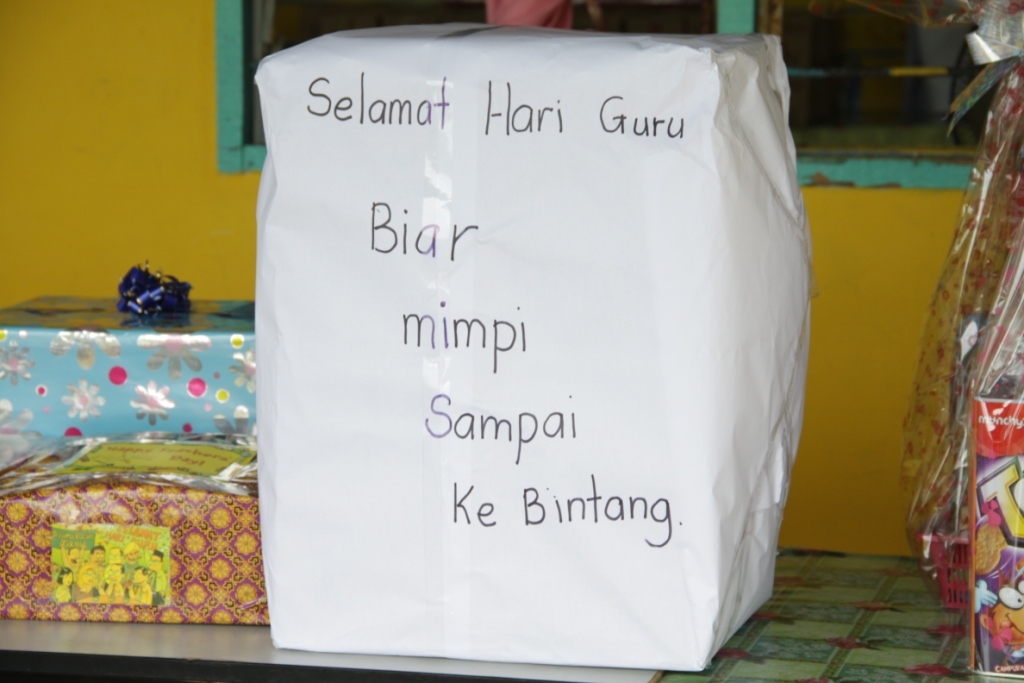 Selamat Hari Guru
Biar
mimpi
Sampai
Ke Bintang.
Day!
munchy